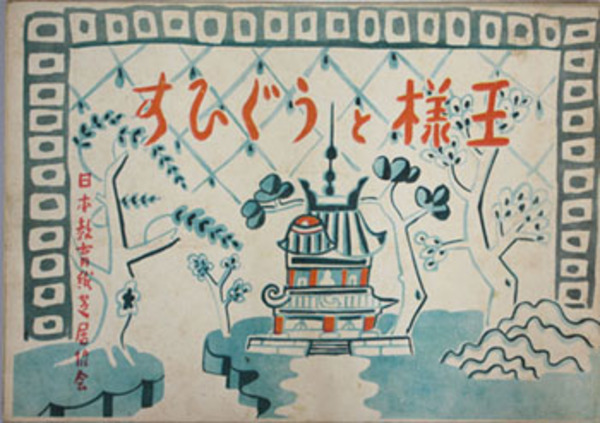 王様とうぐひす
日本教育紙芝居協会